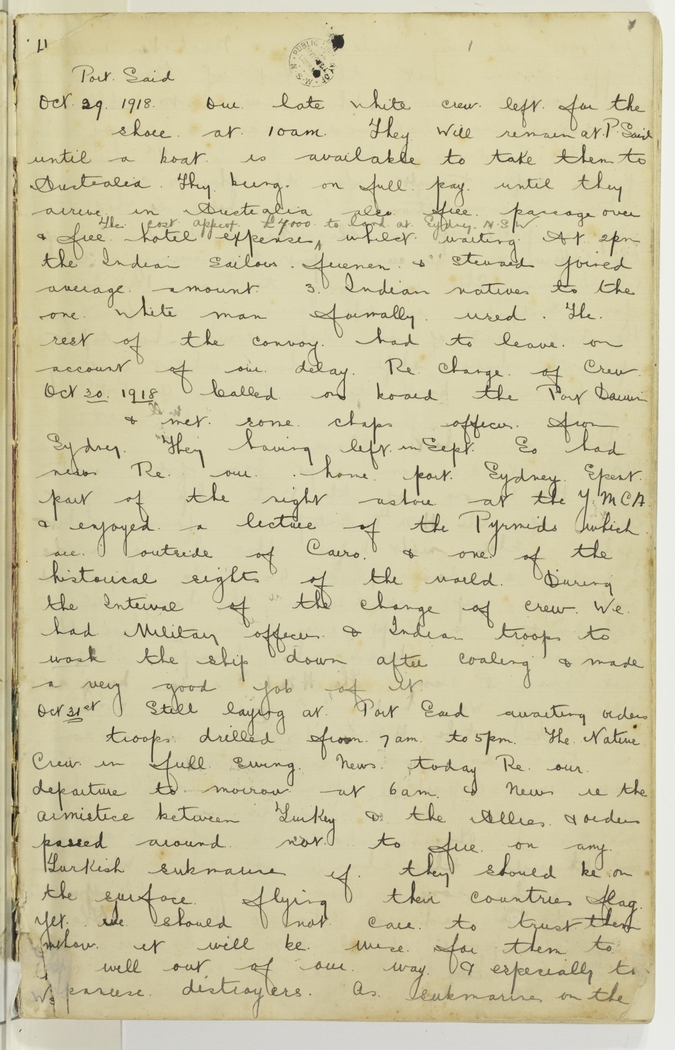 11
Port. Said
Oct. 29. 1918. Our late white crew left for the
shore. at 10am. They will remain at P Said
until a boat. is available to take them to
Australia. They being. on full pay. until they
arrive in Australia also free. passage over
The cost approx. £4000 to land at Sydney N.S.W
& free hotel expenses whilst waiting At 2pm
the Indian Sailors. firemen. & Stewards joined
average amount 3. Indian natives to the
one. white man formally used. The.
rest of the convoy. had to leave. on
account of our delay. Re change. of Crew.
Oct 30. 1918 Called on board the Port Darwin
& met. some chaps officers from
Sydney. They having left in Sept. So had
news Re. our. home port. Sydney. Spent.
part of the night ashore at the Y.M.C.A.
& enjoyed a lecture of the Pyrmids which
are outside of Cairo. & one of the
historical sights of the world. During
the Interval of the change of crew. We
had Military officers & Indian troops to
wash the ship down after coaling & made
a very good job of it
Oct 31st Still laying at Port Said awaiting orders
troops drilled from 7am. to 5pm. The Native
Crew in full swing. News today Re. our.
departure to morrow at 6am. & News re the
armistice between Turkey & the Allies. & orders
passed around not to fire on any.
Turkish submarine if they should be on
the surface. flying their countries flag.
yet. we should not care to trust them
it will be wise for them to
well out of our. way. & especially to
distroyers. As submarines on the